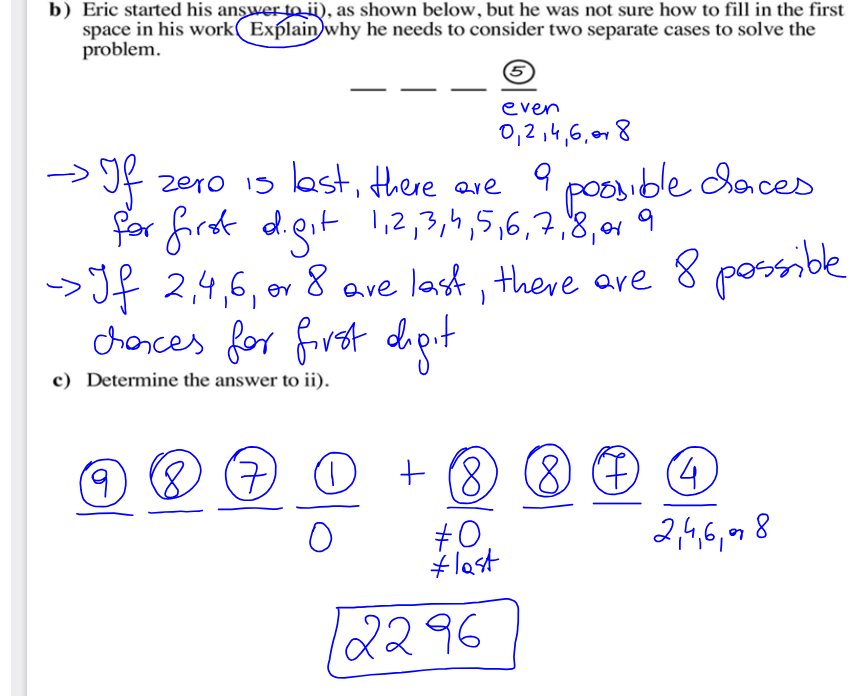 b) Eric started his answer to ii), as shown below, but he was not sure how to fill in the first
space in his work. Explain why he needs to consider two separate cases to solve the
problem.
5
even
0,2,4,6, or 8
→ If zero is last, there are 9 possible choices
for first digit 1,2,3,4,5,6,7,8, or 9
→ If 2,4,6, or 8 are last, there are 8 possible
choices for first digit
c) Determine the answer to ii).
9 8 7 1 + 8 8 7 4
0 ≠0 2,4,6, or 8
≠last
2296